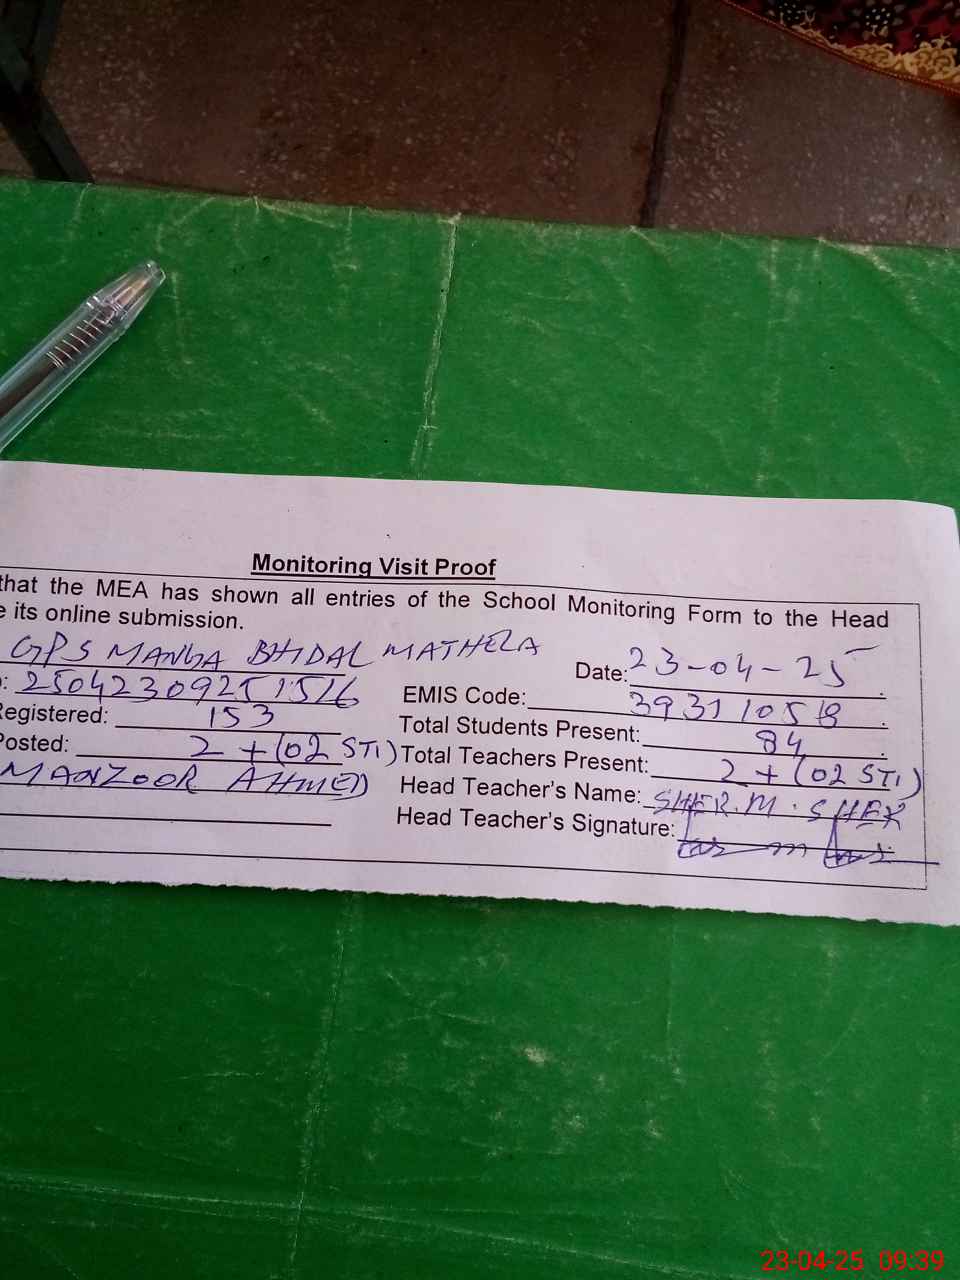 Monitoring Visit Proof
that the MEA has shown all entries of the School Monitoring Form to the Head
e its online submission.
GPS MANGA BHIDAL MATHELA Date: 23-04-25
: 25042309251516 EMIS Code: 393110518
Registered: 153 Total Students Present: 84
Posted: 2 + (02 STI) Total Teachers Present: 2 + (02 STI)
MANZOOR AHMED Head Teacher's Name: SHER. M. SHER
Head Teacher's Signature:
23-04-25 09:39